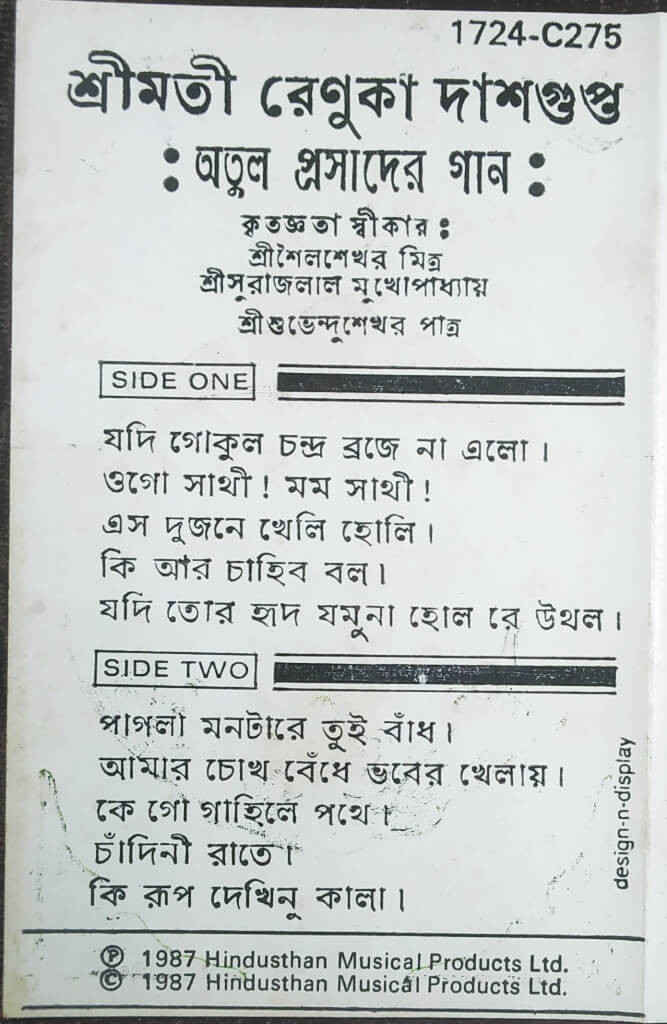 1724-C275
শ্রীমতী রেণুকা দাশগুপ্ত
: অতুল প্রসাদের গান :
কৃতজ্ঞতা স্বীকার :
শ্রীশৈলশেখর মিত্র
শ্রীসুরাজলাল মুখোপাধ্যায়
শ্রীশুভেন্দুশেখর পাত্র
SIDE ONE
যদি গোকুল চন্দ্র ব্রজে না এলো।
ওগো সাথী! মম সাথী!
এস দুজনে খেলি হোলি।
কি আর চাহিব বল।
যদি তোর হৃদ যমুনা হোল রে উথল।
SIDE TWO
পাগলা মনটারে তুই বাঁধ।
আমার চোখ বেঁধে ভবের খেলায়।
কে গো গাহিলে পথে।
চাঁদিনী রাতে।
কি রূপ দেখিনু কালা।
design-n-display
Ⓟ 1987 Hindusthan Musical Products Ltd.
© 1987 Hindusthan Musical Products Ltd.